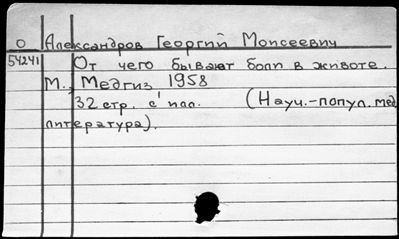 О Александров Георгий Моисеевич
54241 От чего бывают боли в животе.
М., Медгиз 1958
32 стр. с илл. (Науч.-попул. мед.
литература).